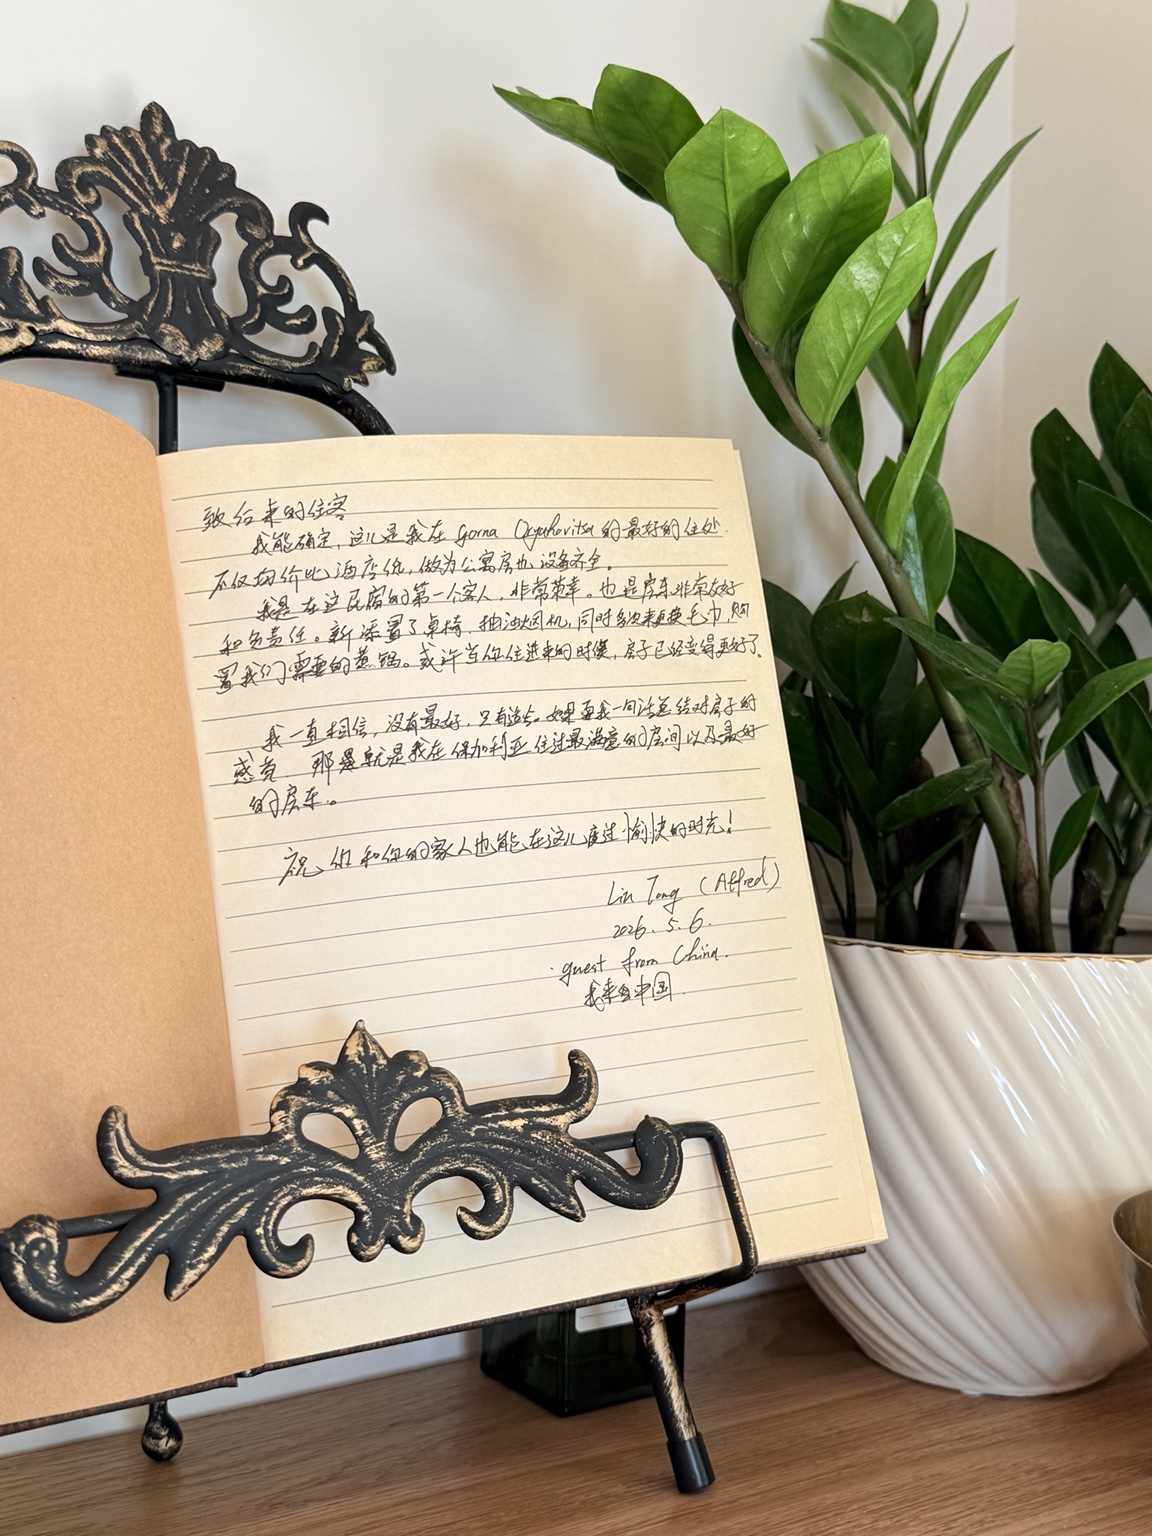 致后来的住客
我能确定，这儿是我在 Gorna Oryahovitsa 的最好的住处.
不仅均价比酒店低，做为公寓房也设备齐全。
我是在这民宿的第一个客人，非常荣幸。也是房东非常友好
和负责任。新添置了桌椅，抽油烟机，同时多次来更换毛巾，购
置我们需要的蒸锅。或许当你住进来的时候，房子已经变得更好了。
我一直相信，没有最好，只有适合。如果要我一句话总结对房子的
感觉，那就是我在保加利亚住过最满意的房间以及最好
的房东。
祝你和你的家人也能在这儿度过愉快的时光！
Lin Tong (Alfred)
2026.5.6.
guest from China.
我来自中国.